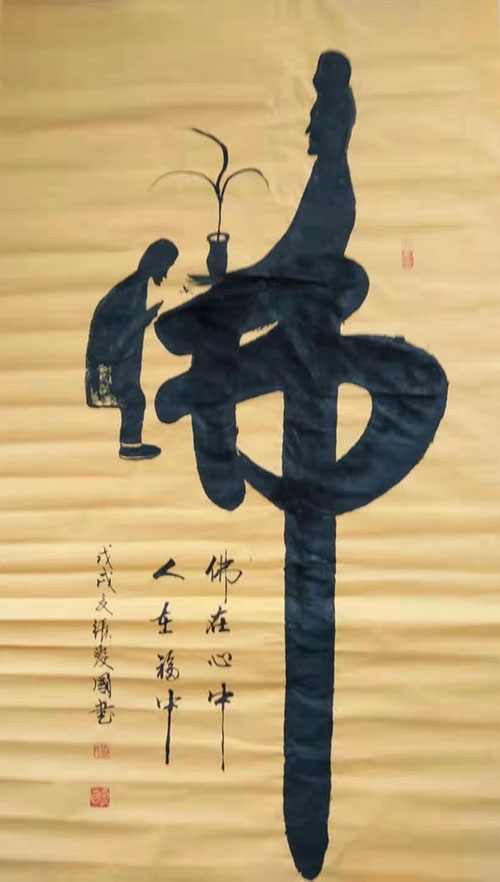 佛
佛在心中
人在福中
戊戌文張愛國書